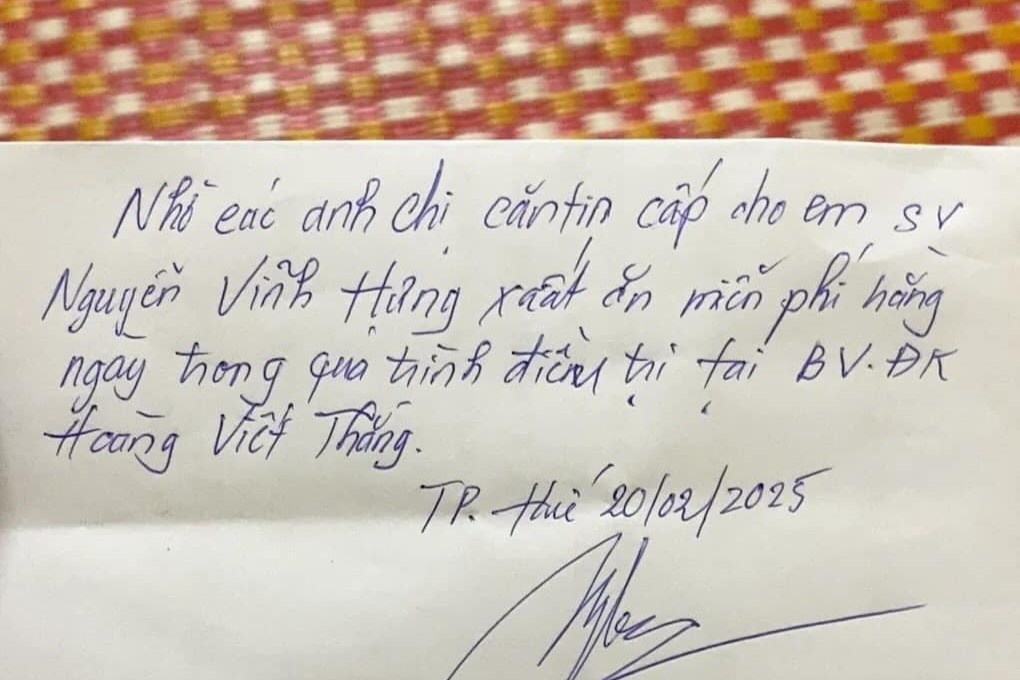 Nhờ các anh chị căntin cấp cho em SV
Nguyễn Vĩnh Hưng xuất ăn miễn phí hằng
ngày trong quá trình điều trị tại BV. ĐK
Hoàng Viết Thắng.
TP. Huế 20/02/2025